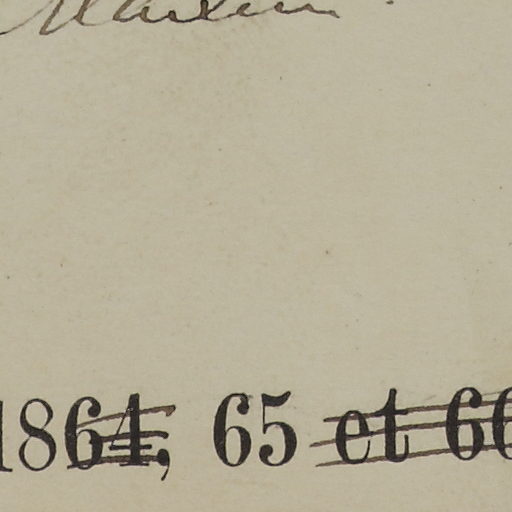 1864, 65 et 66